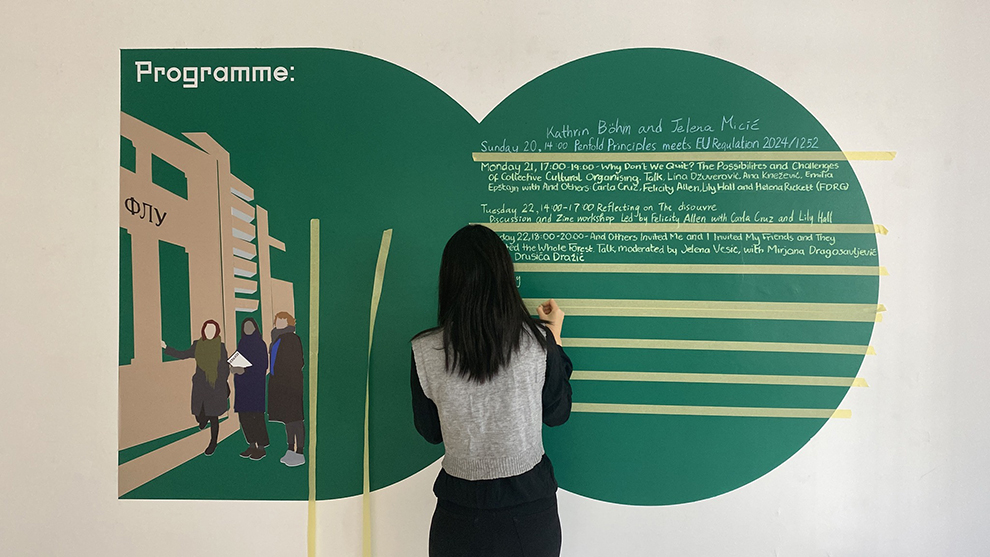 Programme:
ФЛУ
Kathrin Böhm and Jelena Micić
Sunday 20, 14:00 Penfold Principles meets EU Regulation 2024/1252
Monday 21, 17:00-19:00 - Why Don't We Quit? The Possibilites and Challenges
of Collective Cultural Organising. Talk, Lina Džuverović, Ana Knežević, Emilia
Epštajn with And Others: Carla Cruz, Felicity Allen, Lily Hall and Helena Reckitt (FDRG)
Tuesday 22, 14:00-17:00 Reflecting on The disouvre
Discussion and Zine workshop Led by Felicity Allen with Carla Cruz and Lily Hall
day 22, 18:00-20:00 - And Others Invited Me and I Invited My Friends and They
ted the Whole Forest. Talk moderated by Jelena Vesić, with Mirjana Dragosavljević
Drusica Dražić